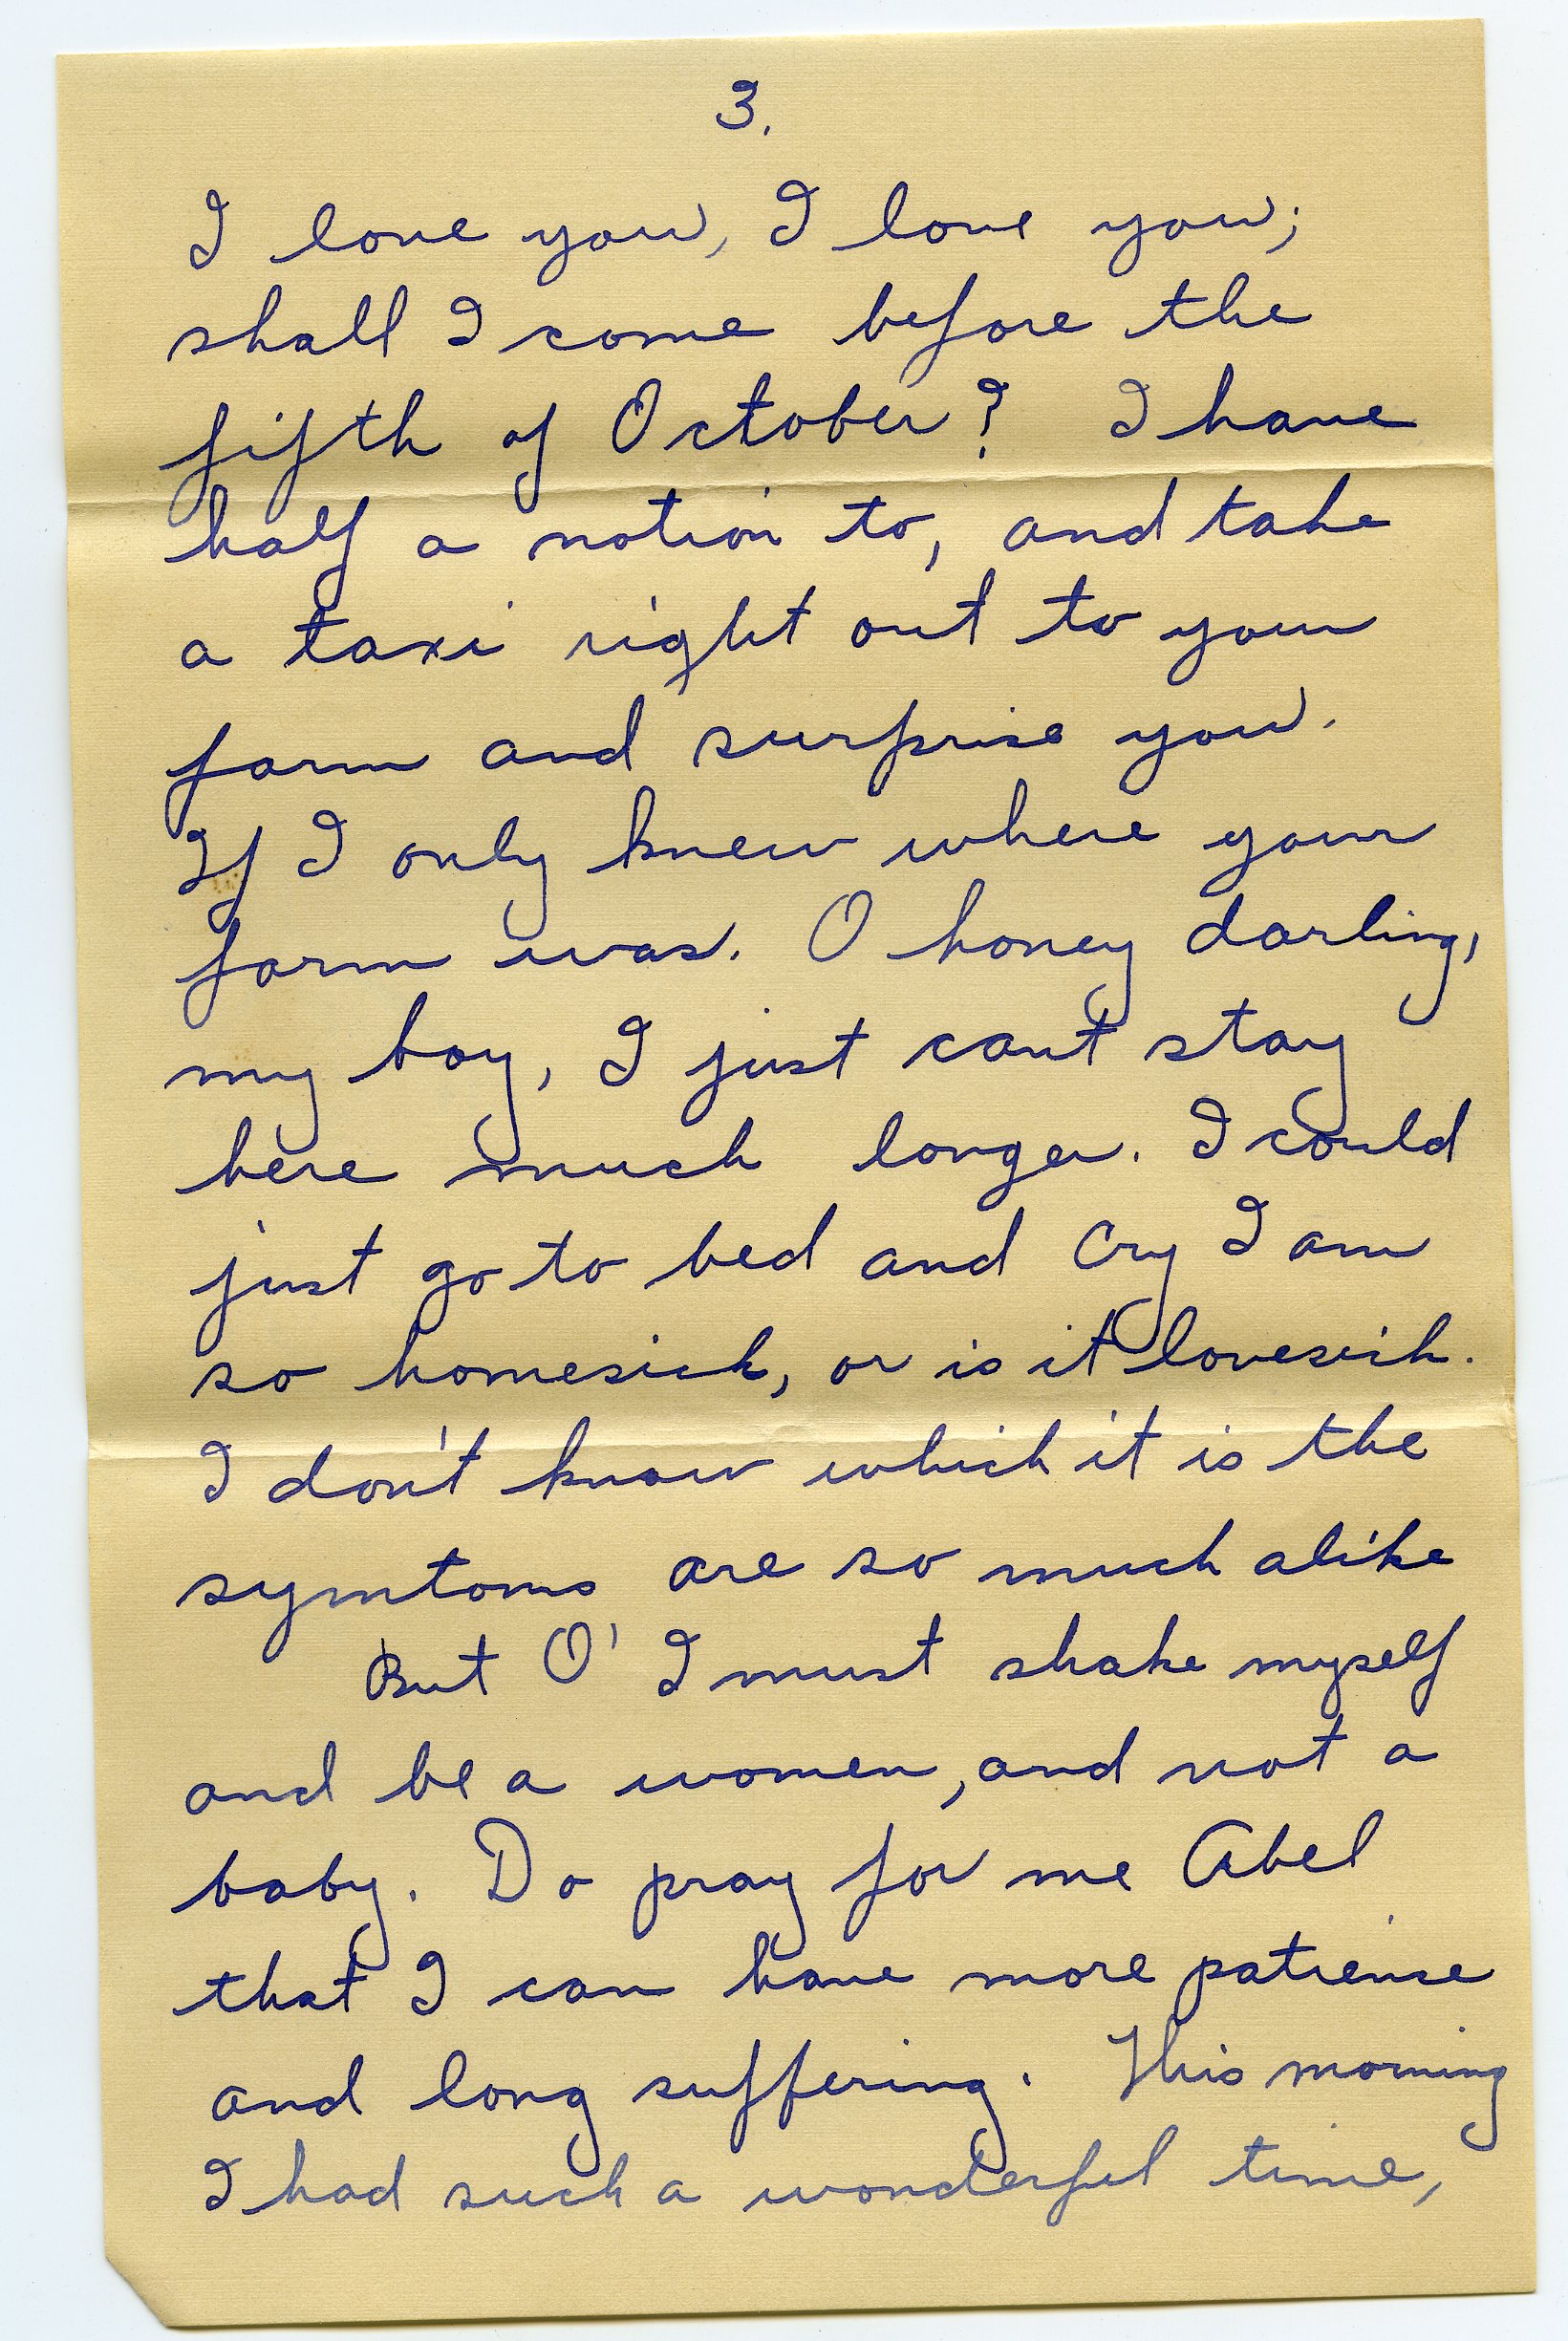 3.
I love you, I love you;
shall I come before the
fifth of October? I have
half a notion to, and take
a taxi right out to your
farm and surprise you.
If I only knew where your
farm was. O honey darling,
my boy, I just cant stay
here much longer. I could
just go to bed and cry I am
so homesick, or is it lovesick.
I don't know which it is the
symtoms are so much alike
But O' I must shake myself
and be a women, and not a
baby. Do pray for me Abel
that I can have more patiense
and long suffering. This morning
I had such a wonderful time,